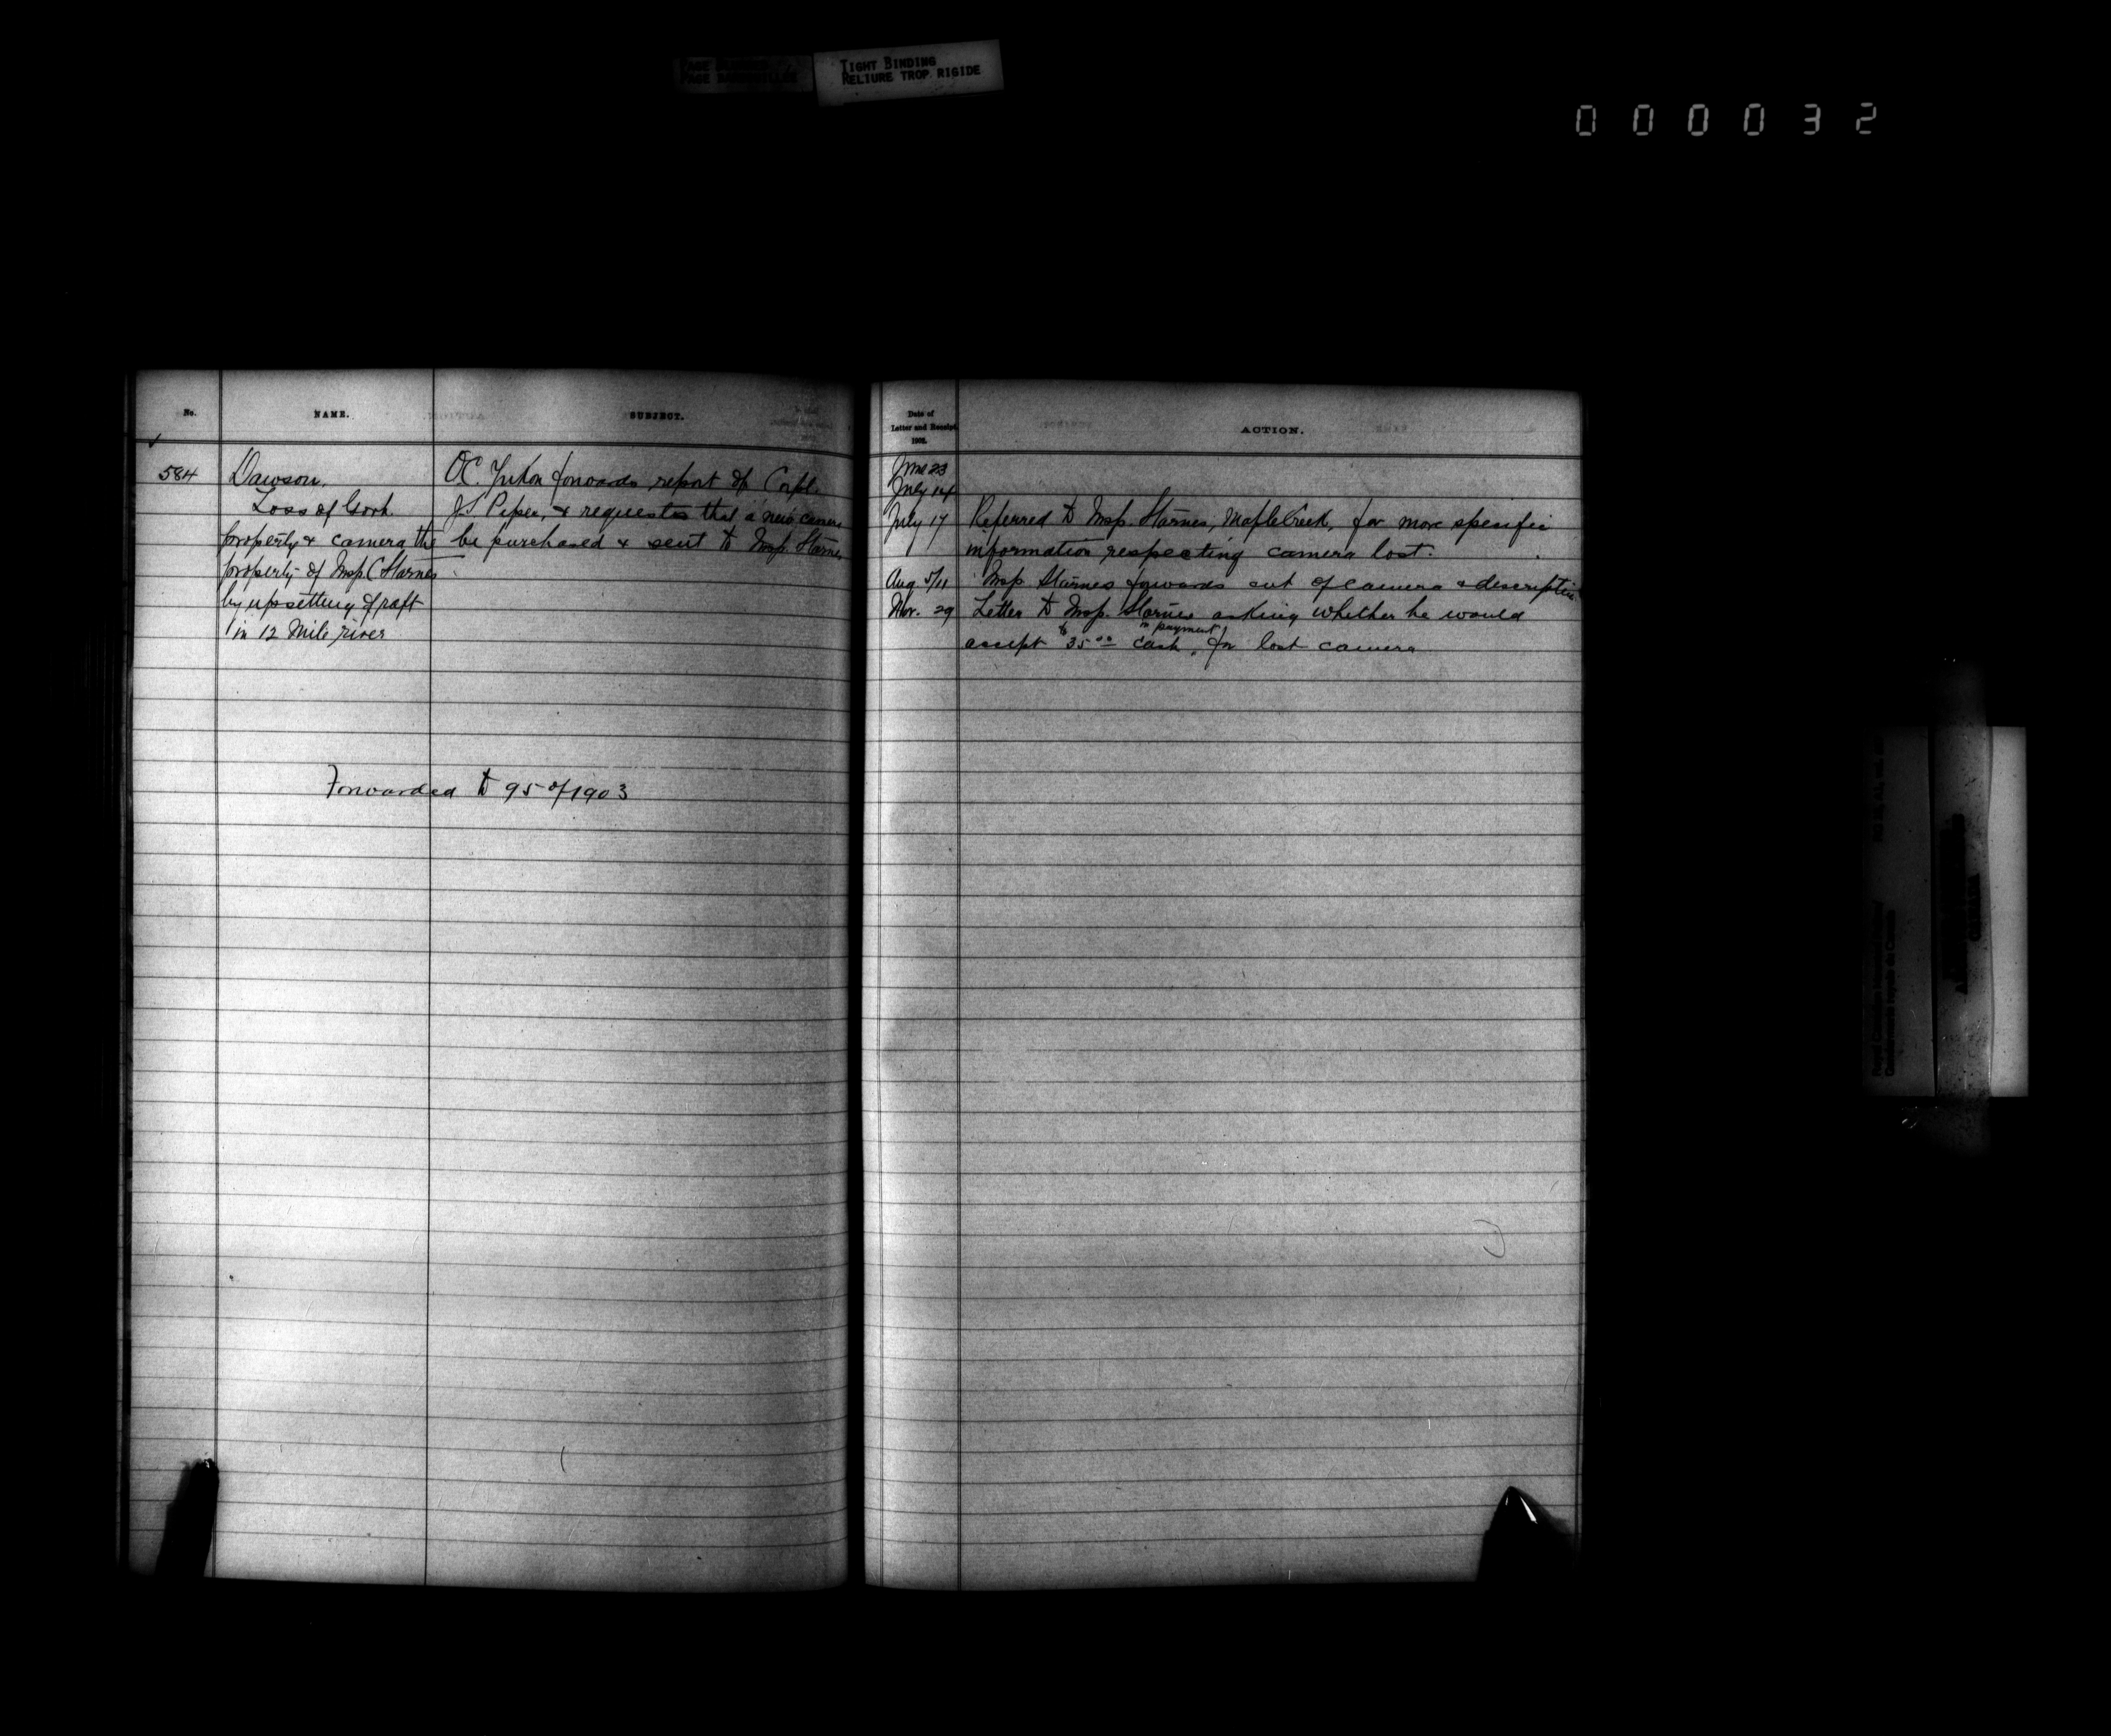 TIGHT BINDING
RELIURE TROP RIGIDE
000032
No.
NAME.
SUBJECT.
584
Dawson.
Loss of Govt.
property & camera the
property of Insp. C Starnes
by upsetting of raft
in 12 Mile river
OC. Yukon forwards report of Corpl.
J.S Piper, & requests that a new camera
be purchased & sent to Insp. Starnes
Forwarded to 95 of 1903
Date of
Letter and Receipt,
1902.
ACTION.
June 23
July 14
July 17 Referred to Insp. Starnes, Maple Creek, for more specific
information respecting camera lost.
Aug 5/11 Insp Starnes forwards cut of camera & description
Nov. 29 Letter to Insp. Starnes asking whether he would
accept $35.00 cash in payment for lost camera